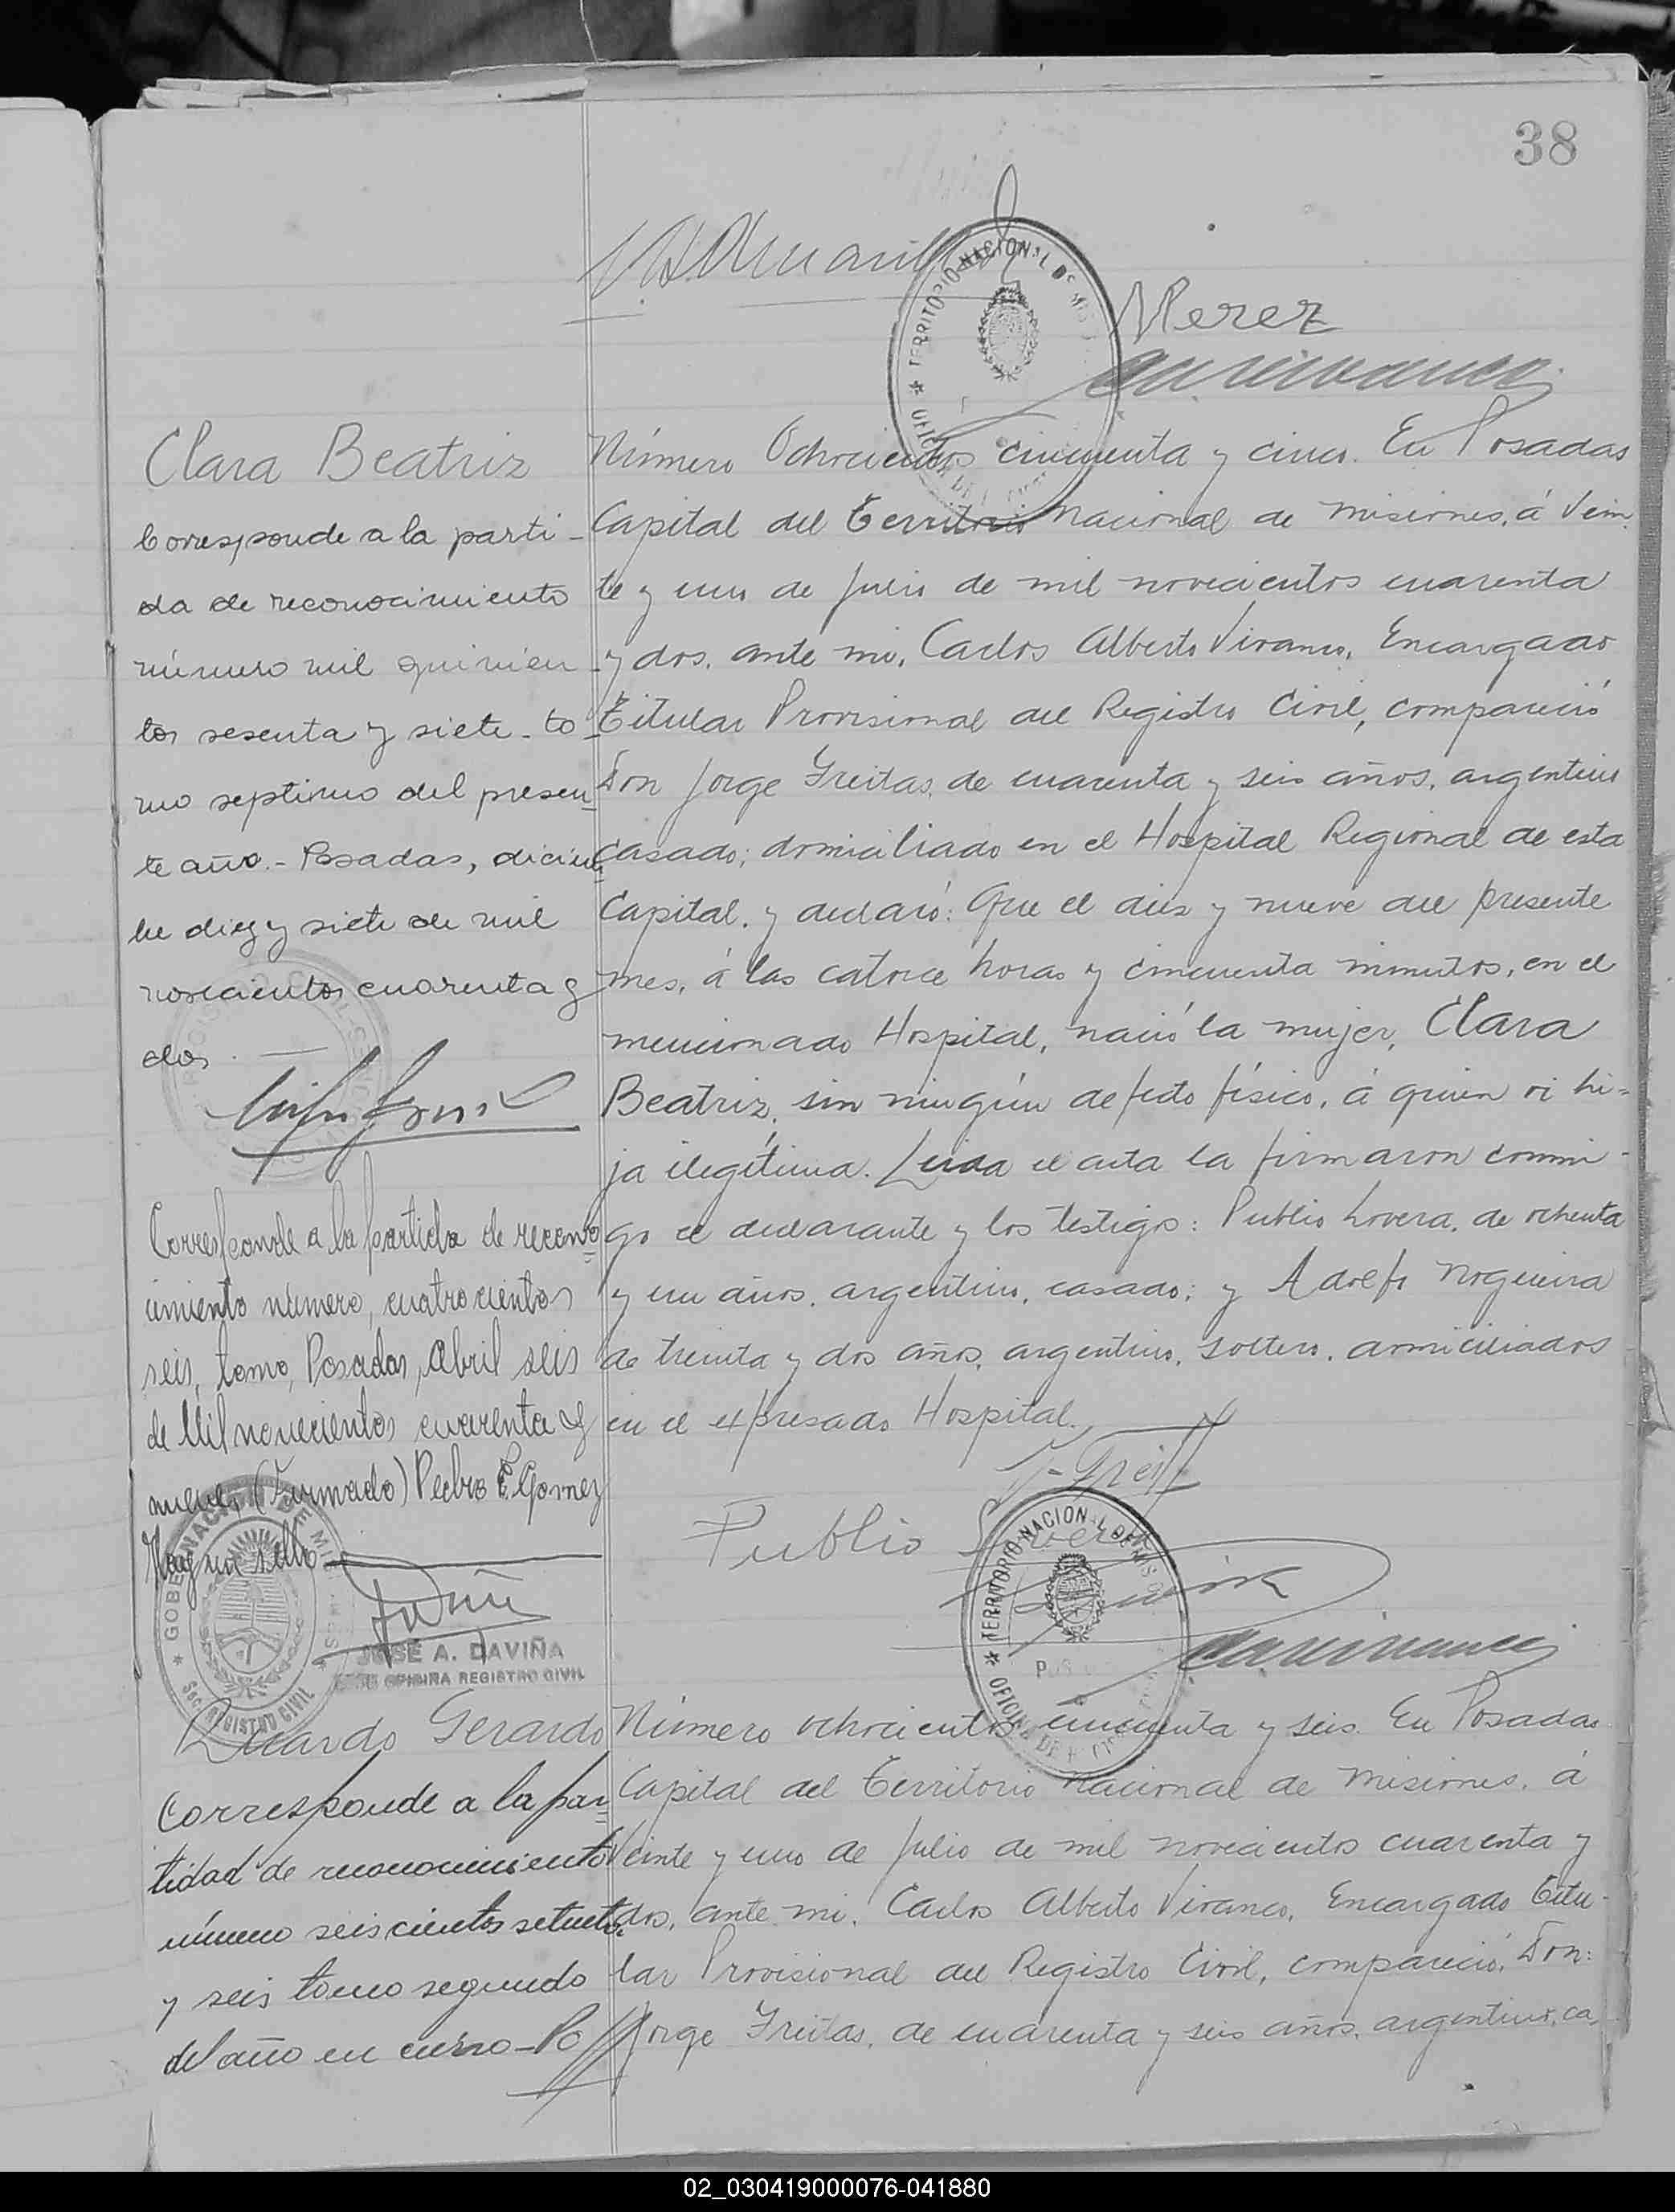 38
Perez
Clara Beatriz
Corresponde a la parti-
da de reconocimiento
número mil quinien-
tos sesenta y siete - to-
mo septimo del presen-
te año. - Posadas, diciem-
bre diez y siete de mil
novecientos cuarenta y
dos.
Corresponde a la partida de recono-
cimiento número, cuatrocientos
seis, tomo, Posadas, Abril seis
de Mil novecientos cuarenta y
nueve, (Firmado) Pedro E. Gomez
Hay un sello
GOBERNACIÓN DE MISIONES
SEC. REGISTRO CIVIL
JOSÉ A. DAVIÑA
JEFE OFICINA REGISTRO CIVIL
Número Ochocientos cincuenta y cinco. En Posadas
Capital del Territorio Nacional de Misiones, á Vein-
te y uno de Julio de mil novecientos cuarenta
y dos, ante mi, Carlos Alberto Vivanco, Encargado
Titular Provisional del Registro Civil, compareció
Don Jorge Freitas, de cuarenta y seis años, argentino
casado; domiciliado en el Hospital Regional de esta
Capital, y declaró: Que el diez y nueve del presente
mes, á las catorce horas y cincuenta minutos, en el
mencionado Hospital, nació la mujer, Clara
Beatriz, sin ningún defecto físico, á quien vi hi=
ja ilegítima. Leida el acta la firmaron conmi-
go el declarante y los testigos: Publio Lovera, de ochenta
y un años, argentino, casado; y Adolfo Nogueira
de treinta y dos años, argentino, soltero, domiciliados
en el expresado Hospital.
J. Freitas
Publio Lovera
TERRITORIO NACIONAL DE MISIONES
Ricardo Gerardo
Corresponde a la par=
tidad de reconocimiento
número seiscientos setenta
y seis tomo segundo
del año en curso - Po
Número ochocientos cincuenta y seis. En Posadas
Capital del Territorio Nacional de Misiones, á
Veinte y uno de Julio de mil novecientos cuarenta y
dos, ante mi, Carlos Alberto Vivanco, Encargado Titu-
lar Provisional del Registro Civil, compareció, Don:
Jorge Freitas, de cuarenta y seis años, argentino, ca-
02_030419000076-041880